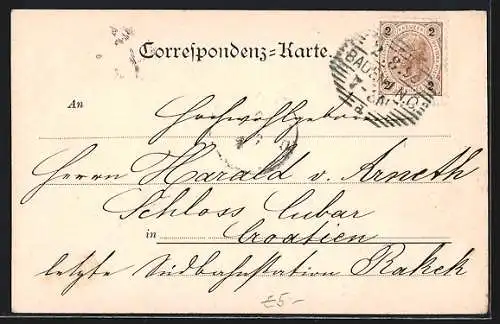 Correspondenz-Karte.
2 2
BADEN N.Ö.
An Hochwohlgeboren
Herrn Harald v. Arneth
Schloss Cubar
in Croatien
letzte Südbahnstation Rakek
£5-